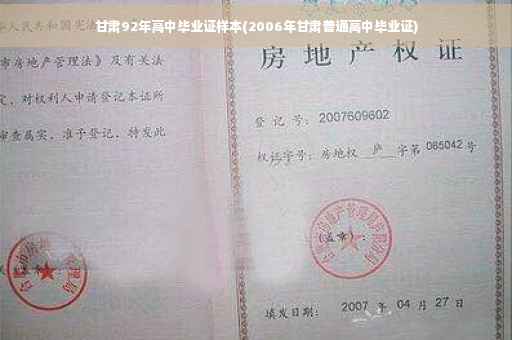 甘肃92年高中毕业证样本(2006年甘肃普通高中毕业证)
人民共和国宪法
市房地产管理法》及有关法
定，对权利人申请登记本证所
审查属实，准予登记，特发此
房地产权证
登记号：2007609602
权证字号：房地权 庐 字第 085042 号
(盖章)：
填发日期： 2007 年 04 月 27 日